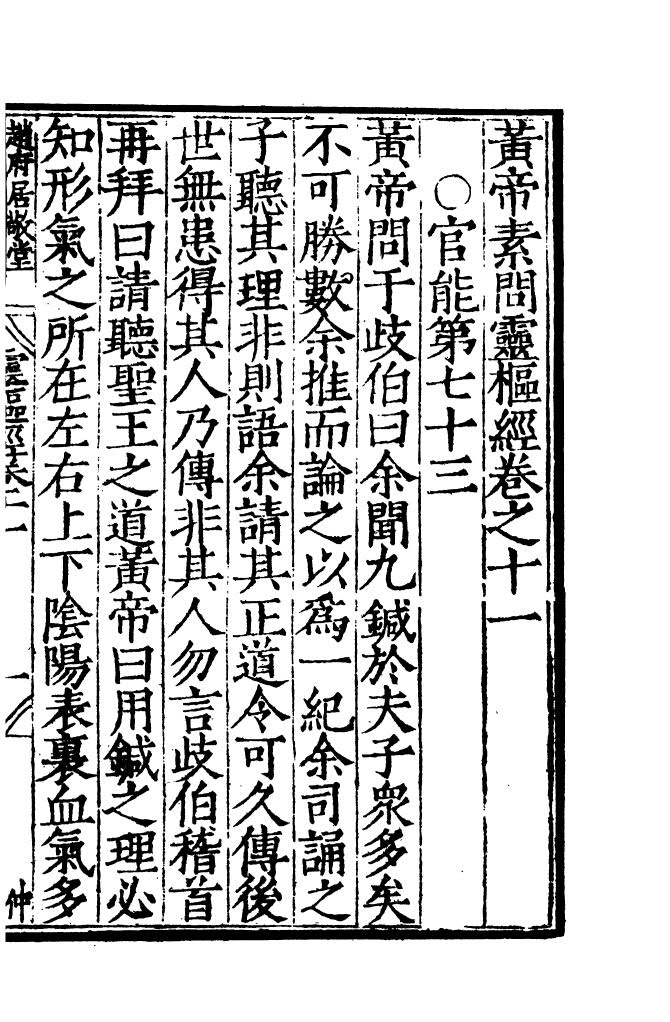 黃帝素問靈樞經卷之十一
○官能第七十三
黃帝問于歧伯曰余聞九鍼於夫子衆多矣
不可勝數余推而論之以爲一紀余司誦之
子聽其理非則語余請其正道令可久傳後
世無患得其人乃傳非其人勿言歧伯稽首
再拜曰請聽聖王之道黃帝曰用鍼之理必
知形氣之所在左右上下陰陽表裏血氣多
趙府居敬堂
仲